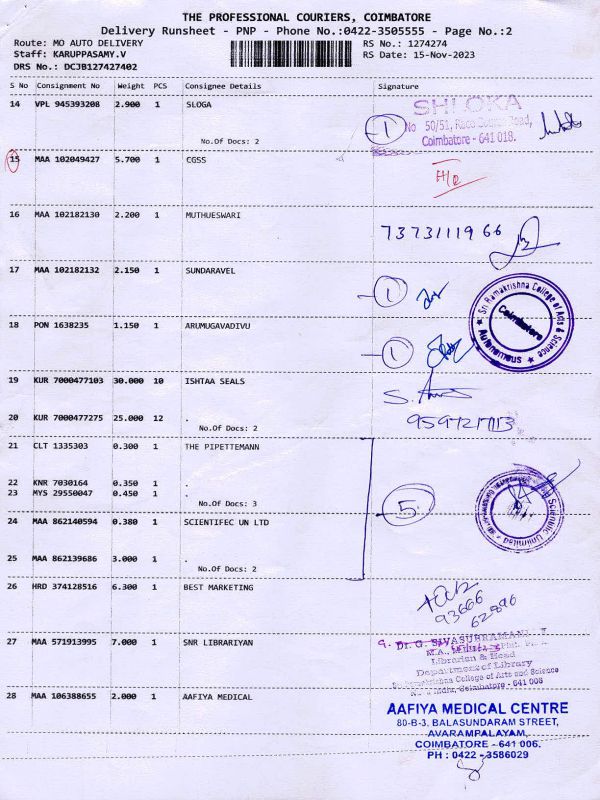 THE PROFESSIONAL COURIERS, COIMBATORE
Delivery Runsheet - PNP - Phone No.:0422-3505555 - Page No.:2
Route: MO AUTO DELIVERY
RS No.: 1274274
Staff: KARUPPASAMY.V
RS Date: 15-Nov-2023
DRS No.: DCJB127427402
S No Consignment No Weight PCS Consignee Details Signature
14 VPL 945393208 2.900 1 SLOGA
SHLOKA
No 50/51, Race Course Road,
Coimbatore - 641 018.
1
No.Of Docs: 2
15 MAA 102049427 5.700 1 CGSS
16 MAA 102182130 2.200 1 MUTHUESWARI
7373111966
17 MAA 102182132 2.150 1 SUNDARAVEL
1
Sri Ramakrishna College of Arts & Science
Coimbatore
Autonomous
18 PON 1638235 1.150 1 ARUMUGAVADIVU
1
19 KUR 7000477103 30.000 10 ISHTAA SEALS
20 KUR 7000477275 25.000 12 .
No.Of Docs: 2
21 CLT 1335303 0.300 1 THE PIPETTEMANN
22 KNR 7030164 0.350 1 .
23 MYS 29550047 0.450 1 .
No.Of Docs: 3
5
24 MAA 862140594 0.380 1 SCIENTIFEC UN LTD
25 MAA 862139686 3.000 1 .
No.Of Docs: 2
26 HRD 374128516 6.300 1 BEST MARKETING
93666
62896
27 MAA 571913995 7.000 1 SNR LIBRARIYAN
Dr. G. SIVASUBRAMANI
Librarian & Head
Department of Library
Sri Ramakrishna College of Arts and Science
Coimbatore - 641 006
28 MAA 106388655 2.000 1 AAFIYA MEDICAL
AAFIYA MEDICAL CENTRE
80-B-3, BALASUNDARAM STREET,
AVARAMPALAYAM,
COIMBATORE - 641 006.
PH : 0422 - 3586029